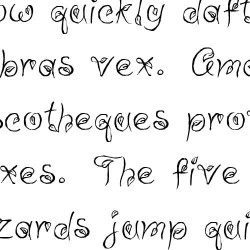 ow quickly daft
bras vex. Ame
scotheques pro
xes. The five
zards jump qui